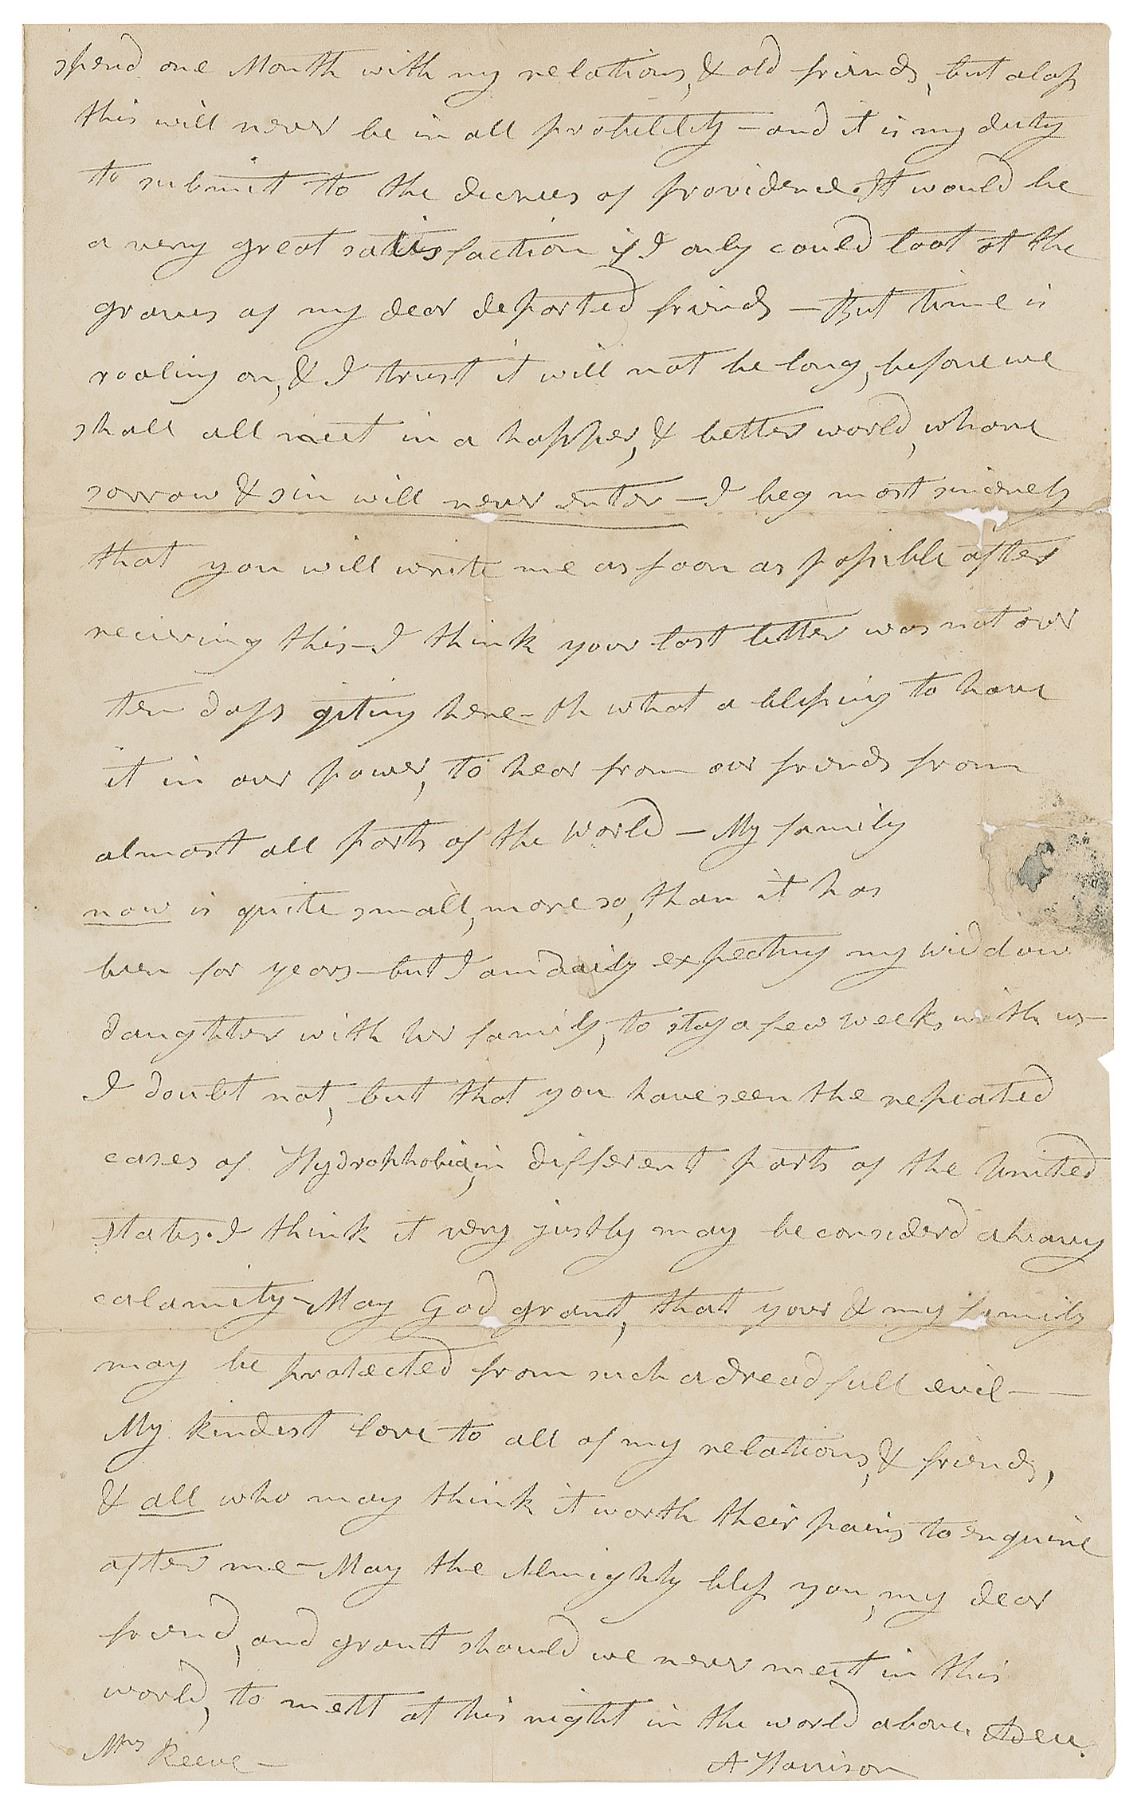 spend one Month with my relations, & old friends, but alass
this will never be in all probility – and it is my duty
to submit to the decrees of providence. It would be
a very great satisfaction if I only could look at the
graves of my dear departed friends – But time is
rooling on, & I trust it will not be long, before we
shall all meet in a happier, & better world, where
sorrow & sin will never enter – I beg most sincerely
that you will write me as soon as possible after
recieving this – I think your last letter was not over
ten days giting here – Oh what a blessing to have
it in our power, to hear from our friends from
almost all parts of the World – My family
now is quite small, more so, than it has
been for years – but I am daily expecting my widdow
daughter with her family, to stay a few weeks with us –
I doubt not, but that you have seen the repeated
cases of Hydrophobia, in different parts of the United
states. I think it very justly may be considerd a heavy
calamity – May God grant, that your & my family
may be protected from such a dreadfull evil –
My kindest love to all of my relations, & friends,
& all who may think it worth their pains to enquire
after me – May the Almighty bless you, my dear
friend, and grant should we never meet in this
world, to mett at his right in the world above. Adeu.
Mrs Reeve – A Harrison